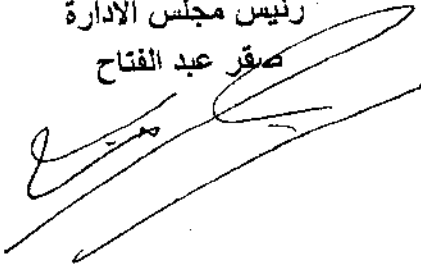 رئيس مجلس الادارة
صقر عبد الفتاح